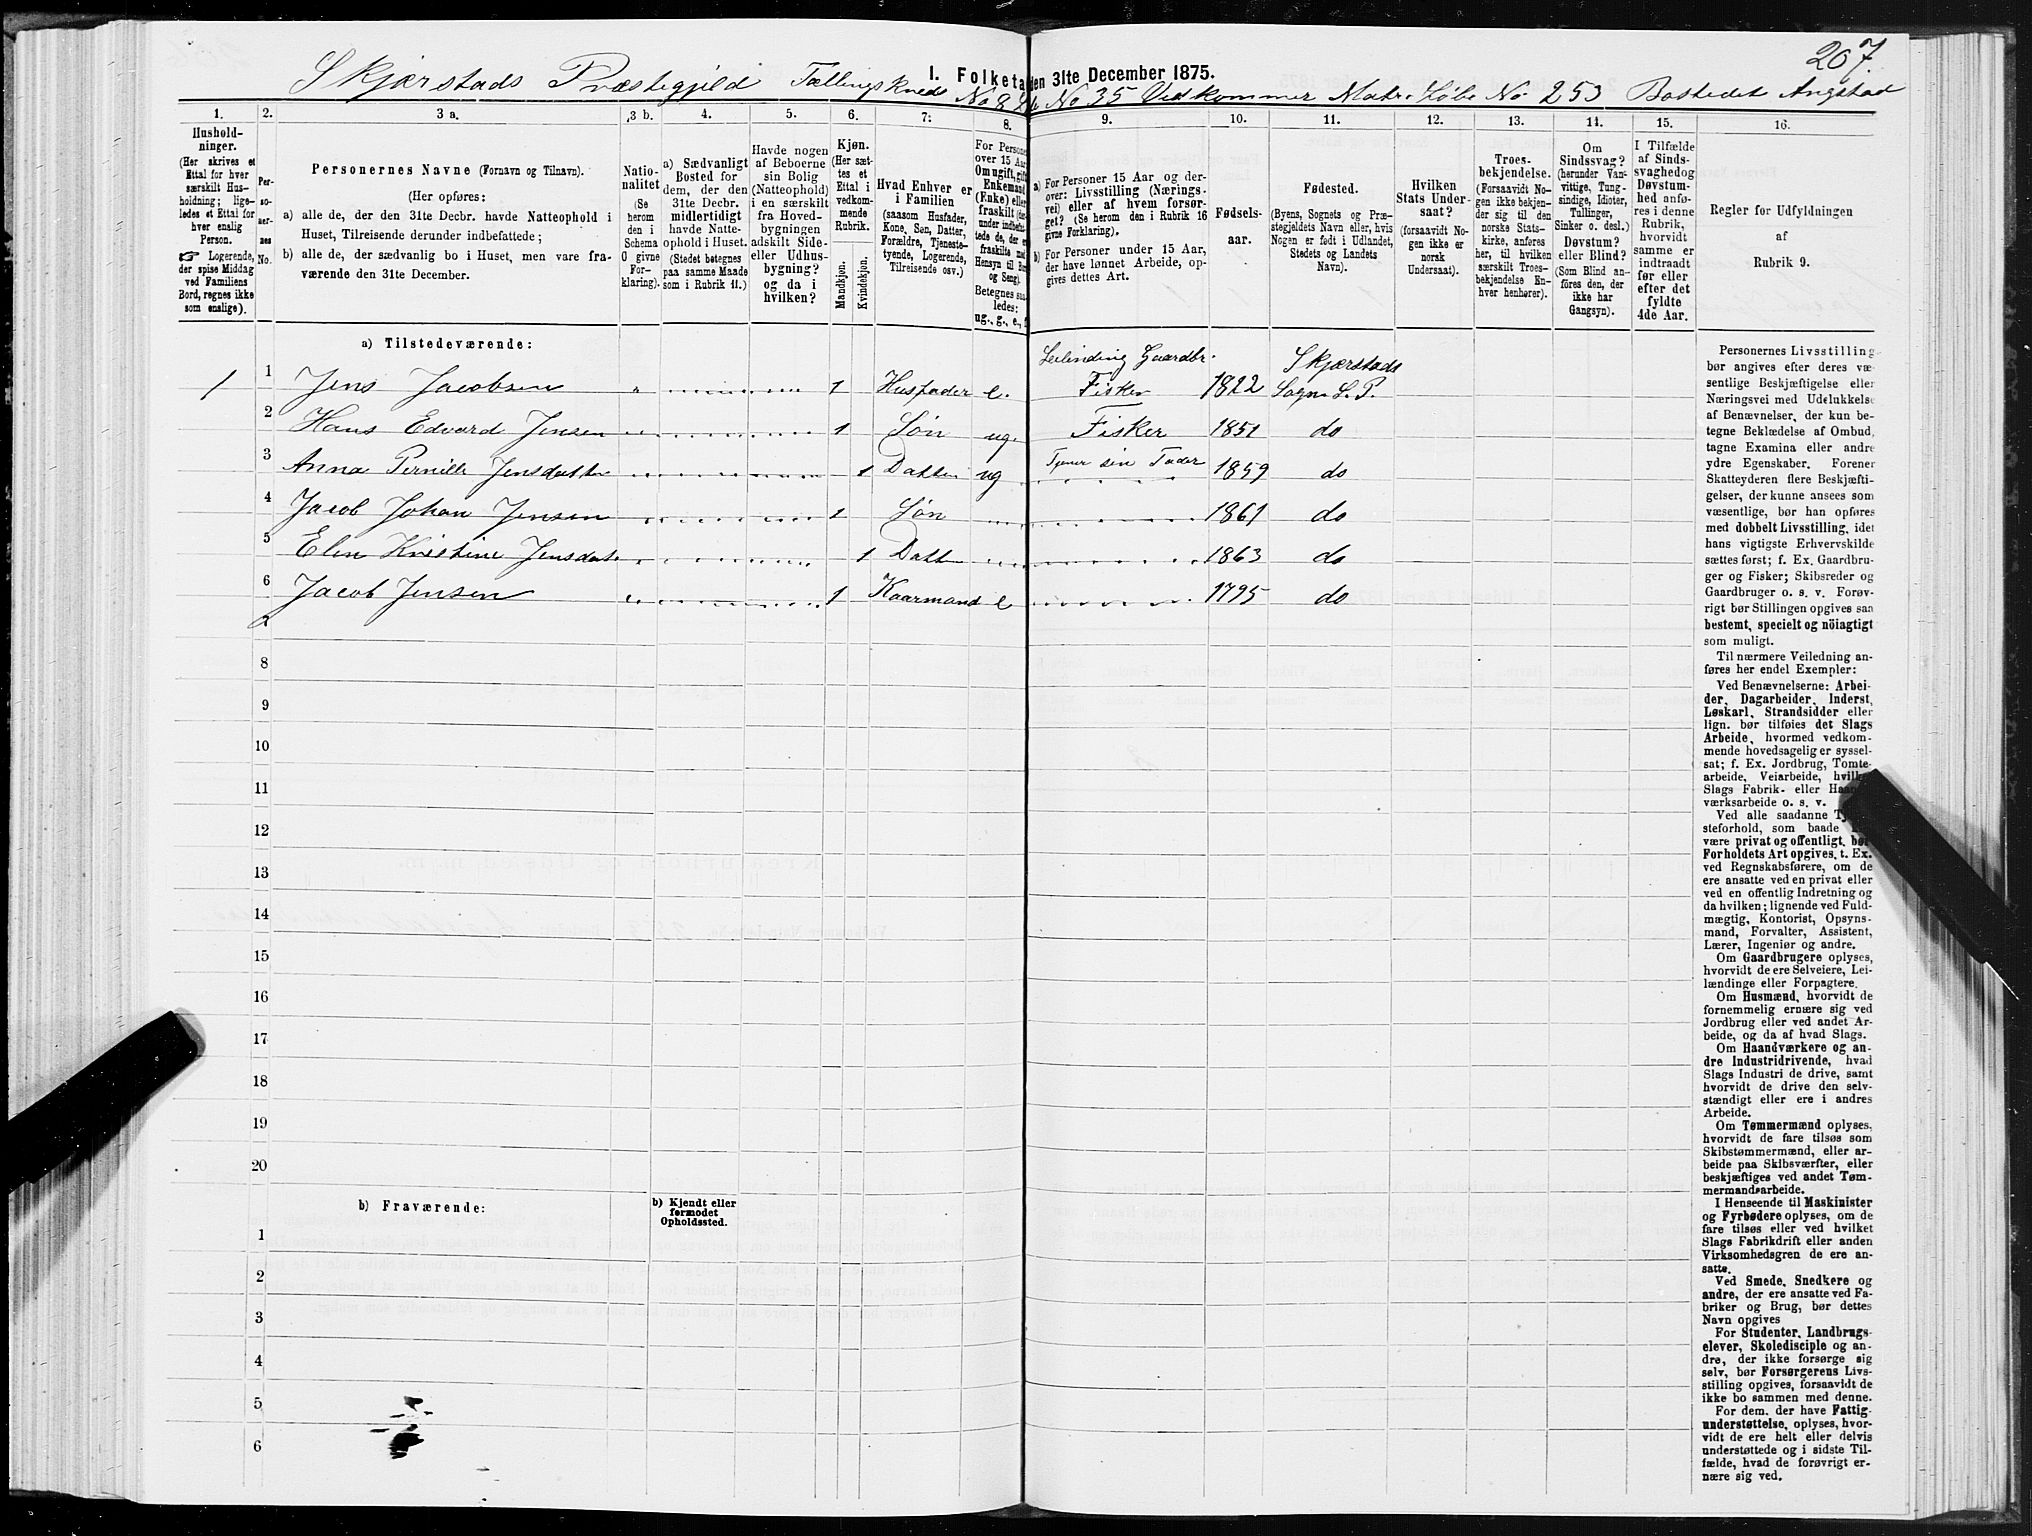 207
Skjærstads Præstegjeld Tællingskreds No 8 No 35 Vedkommer Matr. Løbe No 253 Bostedet Angstad
1. Folketa den 31te December 1875.
1. 2. 3 a. 3 b. 4. 5. 6. 7. 8. 9. 10. 11. 12. 13. 14. 15. 16.
Hushold-
ninger.
(Her skrives et
Ettal for hver
særskilt Hus-
holdning; lige-
ledes et Ettal for
hver enslig
Person.
☞ Logerende,
der spise Middag
ved Familiens
Bord, regnes ikke
som enslige).
Per-
so-
ner-
nes
No.
Personernes Navne (Fornavn og Tilnavn).
(Her opføres:
a) alle de, der den 31te Decbr. havde Natteophold i
Huset, Tilreisende derunder indbefattede;
b) alle de, der sædvanlig bo i Huset, men vare fra-
værende den 31te December.
Natio-
nalitet
(Se
herom
den i
Schema
O givne
For-
klaring).
a) Sædvanligt
Bosted for
dem, der den
31te Decbr.
midlertidigt
havde Natte-
ophold i Huset.
(Stedet betegnes
paa samme Maade
som i Rubrik 11.)
Havde nogen
af Beboerne
sin Bolig
(Natteophold)
i en særskilt
fra Hoved-
bygningen
adskilt Side-
eller Udhus-
bygning?
og da i
hvilken?
Kjøn.
(Her sæt-
tes et
Ettal i
vedkom-
mende
Rubrik.
Mandkjøn.
Kvindekjøn.
Hvad Enhver er
i Familien
(saasom Husfader,
Kone, Søn, Datter,
Forældre, Tjeneste-
tyende, Logerende,
Tilreisende osv.)
For Persone
over 15 Aar
Om ugift, gift
Enkemand
(Enke) eller
fraskilt
under indbefat-
tede de, der e
fraskilte med
Hensyn til Bo
og Seng).
Betegnes saa-
ledes:
ug., g., e.,
a) For Personer 15 Aar og der-
over: Livsstilling (Nærings-
vei) eller af hvem forsør-
get? (Se herom den i Rubrik 16
givne Forklaring).
b) For Personer under 15 Aar,
der have lønnet Arbeide, op-
gives dettes Art.
Fødsels-
aar.
Fødested.
(Byens, Sognets og Præ-
stegjeldets Navn eller, hvis
Nogen er født i Udlandet,
Stedets og Landets
Navn).
Hvilken
Stats Under-
saat?
(forsaavidt No-
gen ikke er
norsk
Undersaat).
Troes-
bekjendelse.
(Forsaavidt No-
gen ikke bekjen-
der sig til den
norske Stats-
kirke, anføres
her, til hvilken
særskilt Troes-
bekjendelse En-
hver henhører).
Om
Sindssvag?
(herunder Van-
vittige, Tung-
sindige, Idioter,
Tullinger,
Sinker o. desl.)
Døvstum?
eller Blind?
(Som Blind an-
føres den, der
ikke har
Gangsyn).
I Tilfælde
af Sinds-
svaghed og
Døvstum-
hed anfø-
res i denne
Rubrik,
hvorvidt
samme er
indtraadt
før eller
efter det
fyldte
4de Aar.
Regler for Udfyldningen
af
Rubrik 9.
a) Tilstedeværende:
Leilending Gaardbr. Skjærstads
1 1 Jens Jacobsen 1 Husfader e. Fisker 1822 Sogn S. P.
2 Hans Edvard Jensen 1 Søn ug. Fisker 1851 do
3 Anna Pernille Jensdatter 1 Datter ug Tjener sin Fader 1859 do
4 Jacob Johan Jensen 1 Søn 1861 do
5 Elen Kristine Jensdat. 1 Datter 1863 do
6 Jacob Jensen 1 Kaarmand e 1795 do
7
8
9
10
11
12
13
14
15
16
17
18
19
20
b) Fraværende:
b) Kjendt eller
formodet
Opholdssted.
1
2
3
4
5
6
Personernes Livsstilling
bør angives efter deres væ-
sentlige Beskjæftigelse eller
Næringsvei med Udelukkelse
af Benævnelser, der kun be-
tegne Beklædelse af Ombud,
tagne Examina eller andre
ydre Egenskaber. Forener
Skatteyderen flere Beskjæfti-
gelser, der kunne ansees som
væsentlige, bør han opføres
med dobbelt Livsstilling, idet
hans vigtigste Erhvervskilde
sættes først; f. Ex. Gaardbru-
ger og Fisker; Skibsreder og
Gaardbruger o. s. v. Forøv-
rigt bør Stillingen opgives saa
bestemt, specielt og nöiagtigt
som muligt.
Til nærmere Veiledning an-
føres her endel Exempler:
Ved Benævnelserne: Arbei-
der, Dagarbeider, Inderst,
Løskarl, Strandsidder eller
lign. bør tilføies det Slags
Arbeide, hvormed vedkom-
mende hovedsagelig er syssel-
sat; f. Ex. Jordbrug, Tomte-
arbeide, Veiarbeide, hvilket
Slags Fabrik- eller Haand-
værksarbeide o. s. v.
Ved alle saadanne Tje-
steforhold, som baade
være privat og offentligt, bør
Forholdets Art opgives, t. Ex.
ved Regnskabsførere, om de
ere ansatte ved en privat eller
ved en offentlig Indretning og
da hvilken; lignende ved Fuld-
mægtig, Kontorist, Opsyns-
mand, Forvalter, Assistent,
Lærer, Ingeniør og andre.
Om Gaardbrugere oplyses,
hvorvidt de ere Selveiere, Lei-
lændinge eller Forpagtere.
Om Husmænd, hvorvidt de
fornemmelig ernære sig ved
Jordbrug eller ved andet Ar-
beide, og da af hvad Slags.
Om Haandværkere og an-
dre Industridrivende, hvad
Slags Industri de drive, samt
hvorvidt de drive den selv-
stændigt eller ere i andres
Arbeide.
Om Tømmermænd oplyses,
hvorvidt de fare tilsøs som
Skibstømmermænd, eller ar-
beide paa Skibsværfter, eller
beskjæftiges ved andet Tøm-
mermandsarbeide.
I Henseende til Maskinister
og Fyrbødere oplyses, om de
fare tilsøs eller ved hvilket
Slags Fabrikdrift eller anden
Virksomhedsgren de ere an-
satte.
Ved Smede, Snedkere og
andre, der ere ansatte ved Fa-
briker og Brug, bør dettes
Navn opgives
For Studenter, Landbrugs-
elever, Skoledisciple og an-
dre, der ikke forsørge sig
selv, bør Forsørgerens Livs-
stilling opgives, forsaavidt de
ikke bo sammen med denne.
For dem, der have Fattig-
understøttelse, oplyses, hvor-
vidt de ere helt eller delvis
understøttede og i sidste Til-
fælde, hvad de forøvrigt er-
nære sig ved.